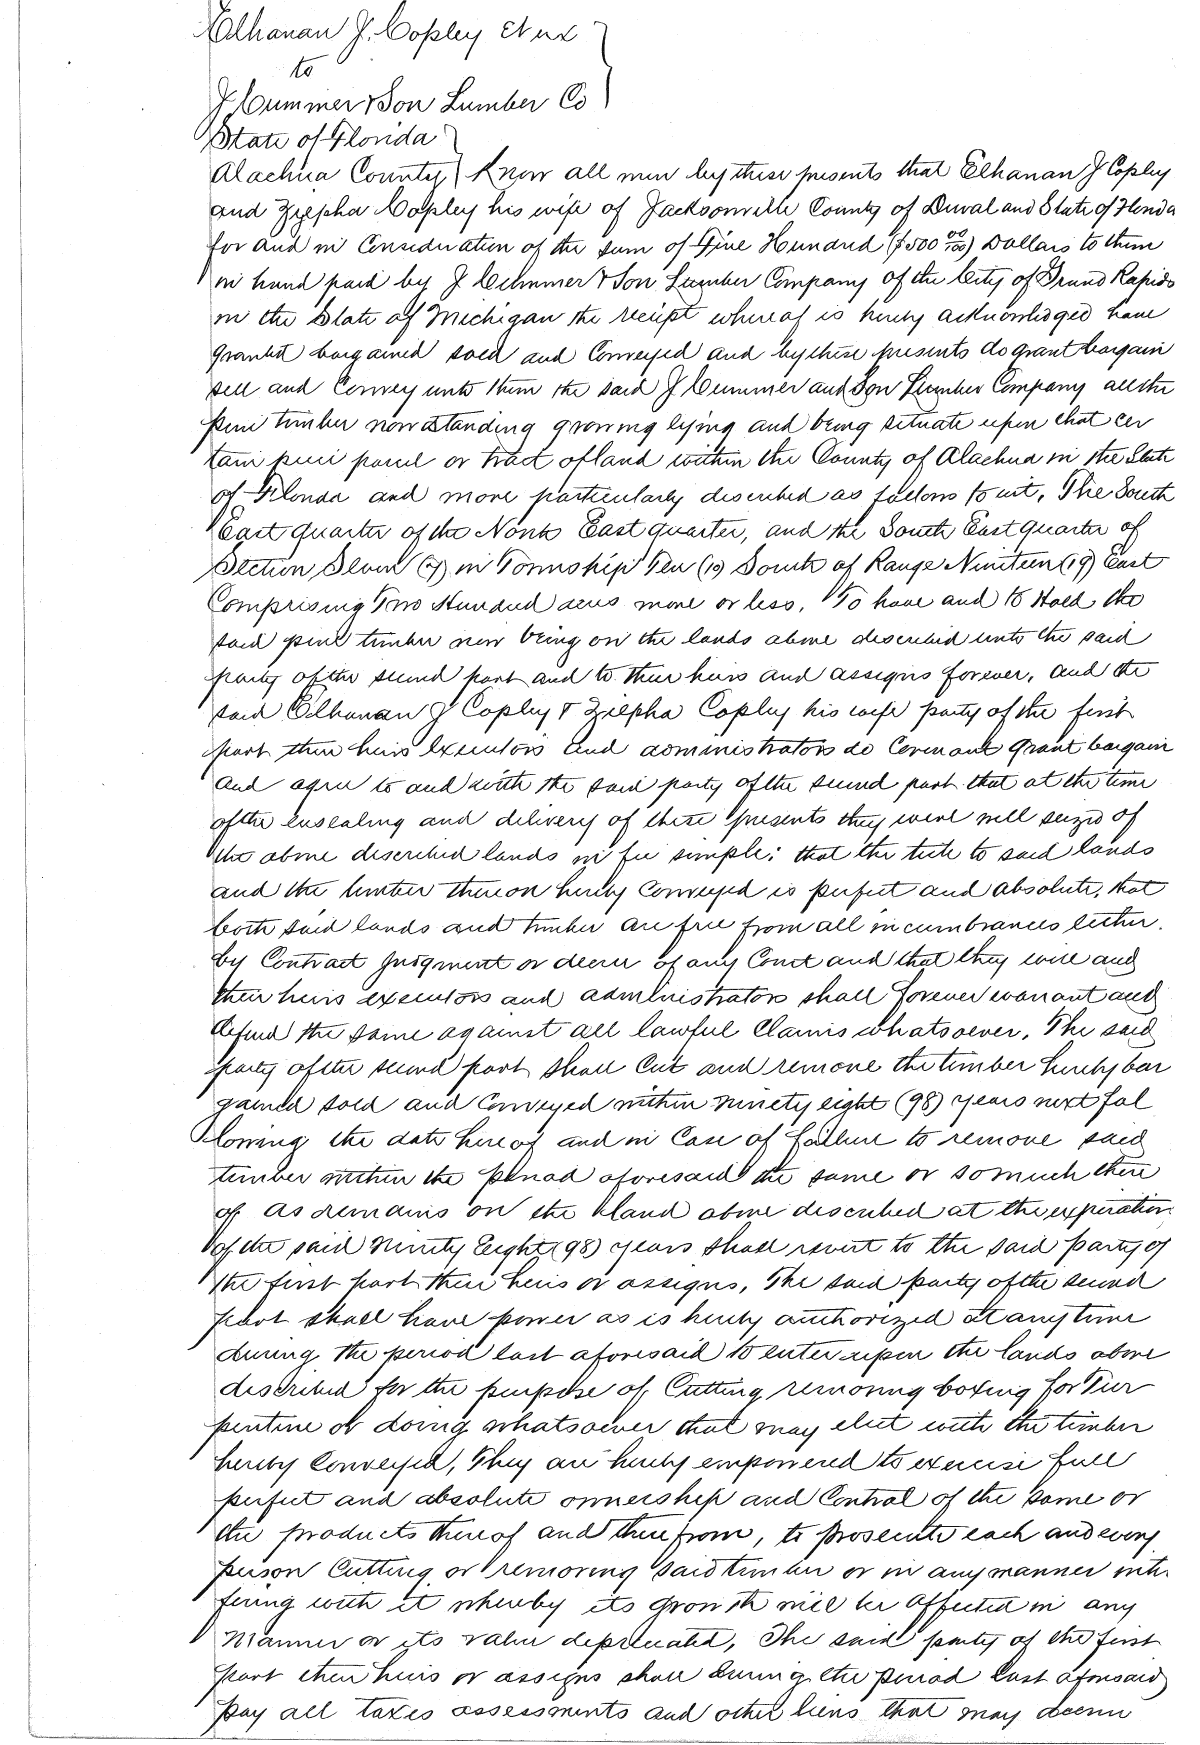 Elhanan J. Copley et ux
to
J Cummer & Son Lumber Co
State of Florida
Alachua County Know all men by these presents that Elhanan J Copley
and Zilpha Copley his wife of Jacksonville County of Duval and State of Florida
for and in Consideration of the sum of Five Hundred ($500 00/100) Dollars to them
in hand paid by J Cummer & Son Lumber Company of the City of Grand Rapids
in the State of Michigan the receipt whereof is hereby acknowledged have
granted bargained sold and Conveyed and by these presents do grant bargain
sell and Convey unto them the said J Cummer and Son Lumber Company all the
pine timber now standing growing lying and being situate upon that cer
tain piece parcel or tract of land within the County of Alachua in the State
of Florida and more particularly described as follows to wit. The South
East quarter of the North East quarter, and the South East quarter of
Section Seven (7) in Township Ten (10) South of Range Nineteen (19) East
Comprising Two Hundred acres more or less. To have and to Hold the
said pine timber now being on the lands above described unto the said
party of the second part and to their heirs and assigns forever, and the
said Elhanan J Copley & Zilpha Copley his wife party of the first
part their heirs executors and administrators do Covenant grant bargain
and agree to and with the said party of the second part that at the time
of the ensealing and delivery of these presents they were well seized of
the above described lands in fee simple; that the title to said lands
and the timber thereon hereby Conveyed is perfect and absolute, that
both said lands and timber are free from all incumbrances either
by Contract Judgment or decree of any Court and that they will and
their heirs executors and administrators shall forever warrant and
defend the same against all lawful Claims whatsoever. The said
party of the second part shall Cut and remove the timber hereby bar
gained sold and Conveyed within ninety eight (98) years next fol
lowing the date hereof and in Case of failure to remove said
timber within the period aforesaid the same or so much there
of as remains on the land above described at the expiration
of the said Ninety Eight (98) years shall revert to the said party of
the first part their heirs or assigns. The said party of the second
part shall have power as is hereby authorized at any time
during the period last aforesaid to enter upon the lands above
described for the purpose of Cutting removing boxing for Tur
pentine or doing whatsoever that may elect with the timber
hereby Conveyed, They are hereby empowered to exercise full
perfect and absolute ownership and Control of the same or
the products thereof and therefrom, to prosecute each and every
person Cutting or removing said timber or in any manner inter
fering with it whereby its growth will be affected in any
manner or its value depreciated, The said party of the first
part their heirs or assigns shall during the period last aforesaid
pay all taxes assessments and other liens that may